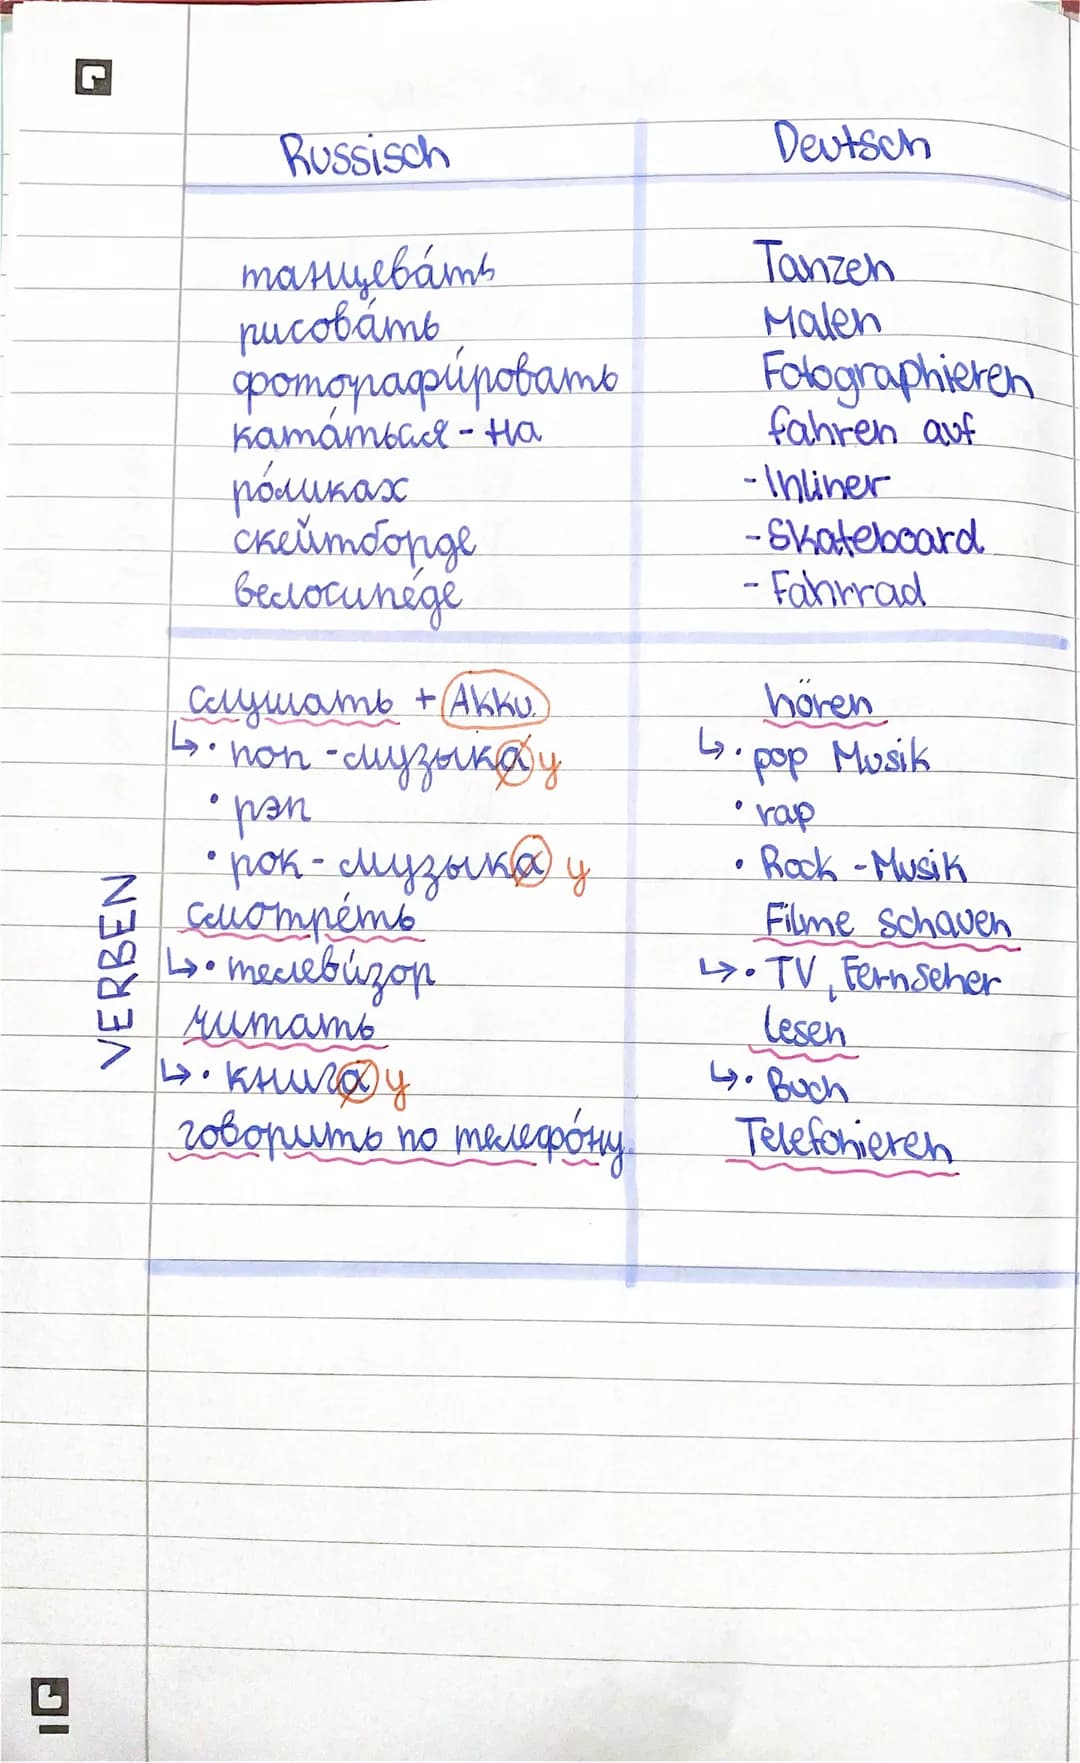 Russisch Deutsch
танцева́ть Tanzen
рисова́ть Malen
фотографи́ровать Fotographieren
ката́ться - на fahren auf
ро́ликах - Inliner
скейтборде - Skateboard
велосипе́де - Fahrrad
слушать + Akku. hören
↳ • поп - музыка у ↳ • pop Musik
• рэп • rap
• рок - музыка у • Rock - Musik
смотре́ть Filme schauen
↳ • телеви́зор ↳ • TV, Fernseher
читать lesen
↳ • книга у ↳ • Buch
говорить по телефо́ну Telefonieren
VERBEN